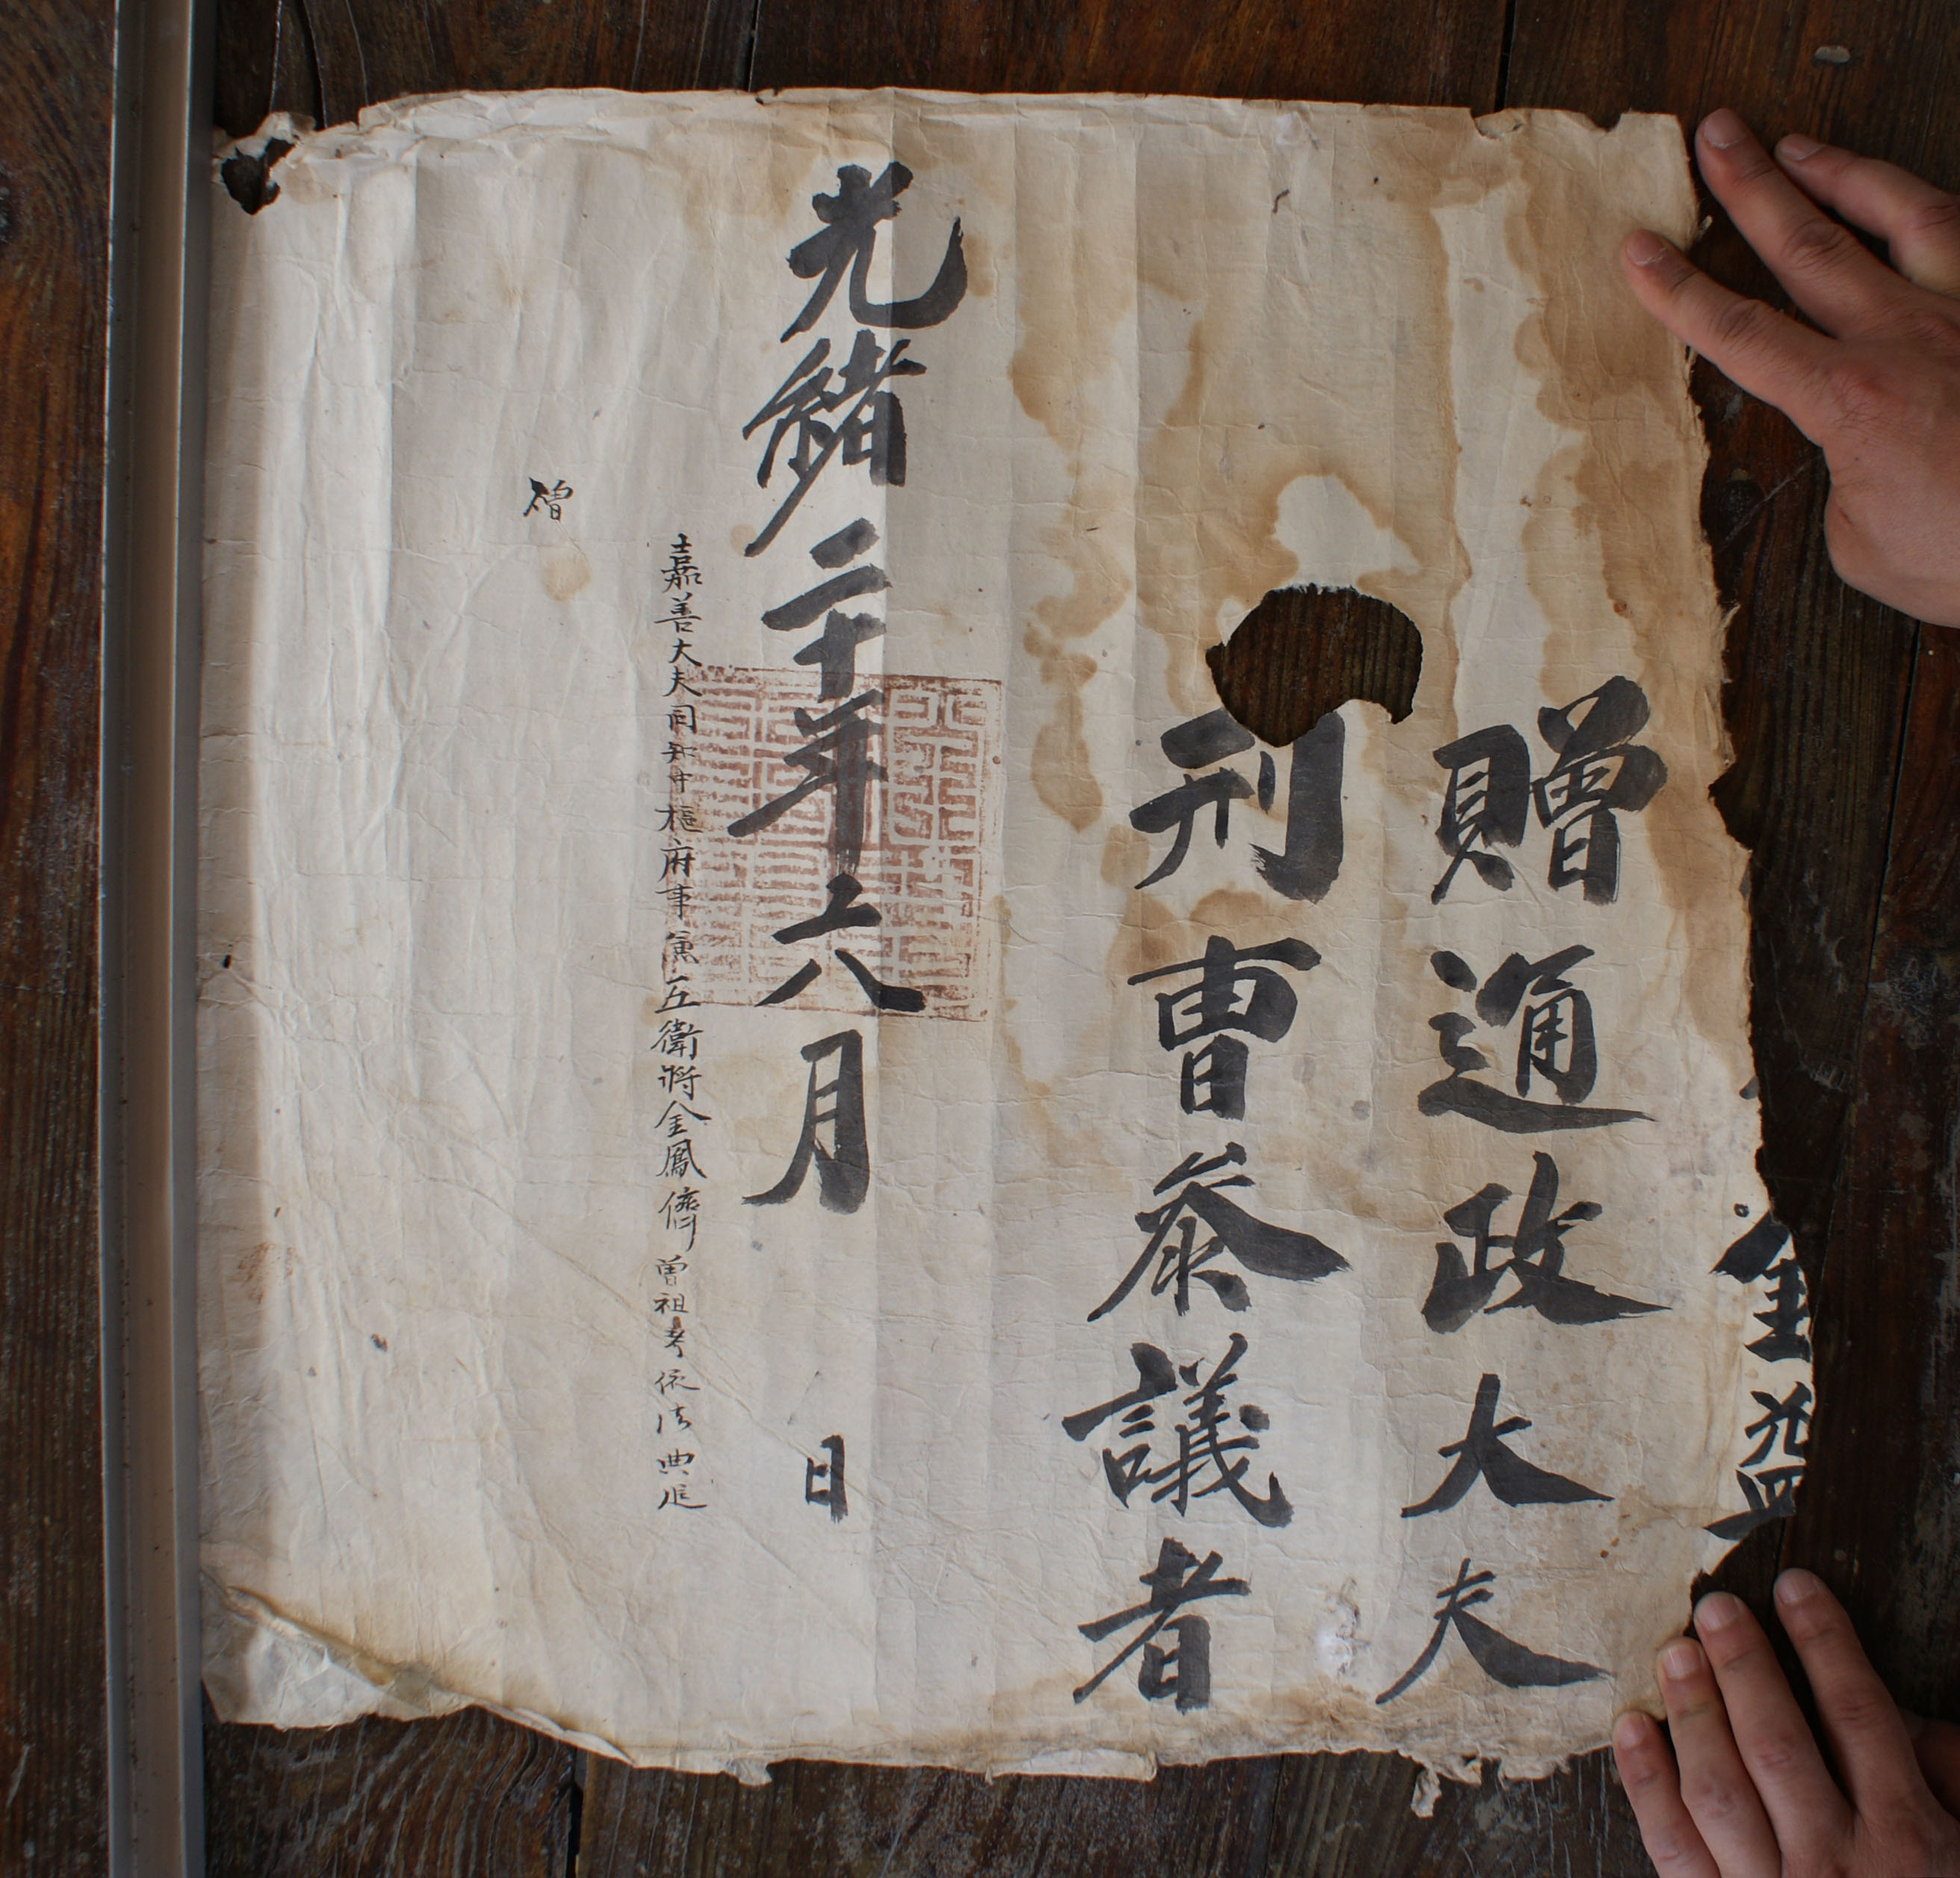 金益
贈通政大夫
刑曺參議者
光緒二十年六月 日
嘉善大夫同知中樞府事兼五衛將金鳳儕曾祖考依法典追
贈